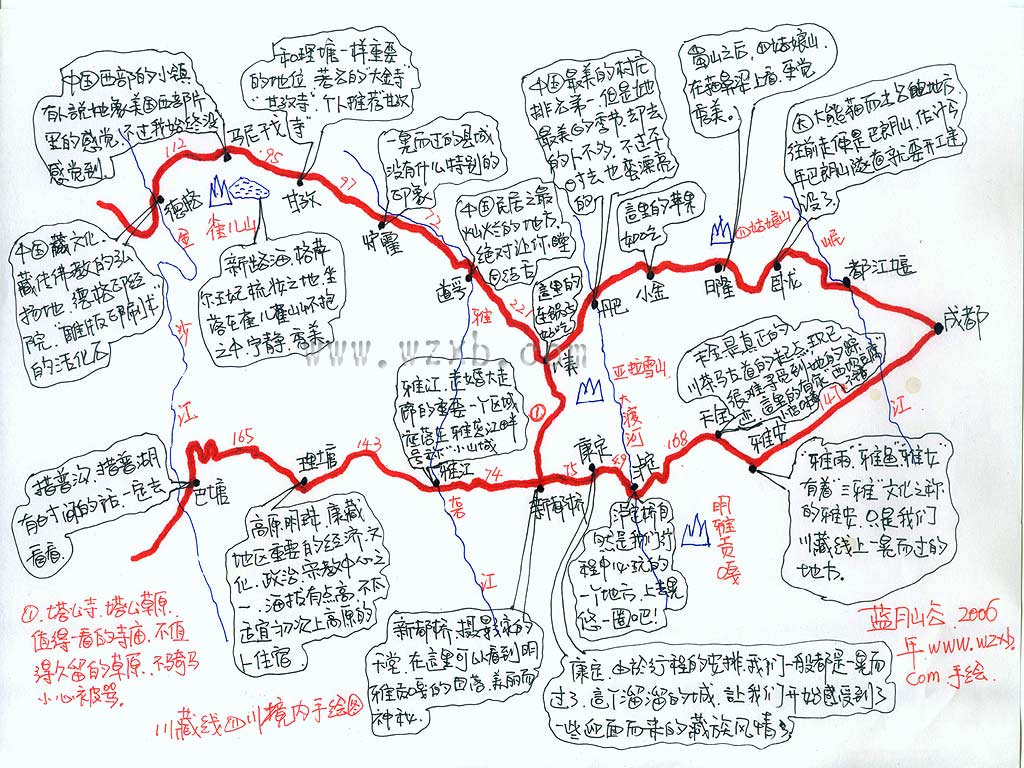 中国西部的小镇
有人说她象美国西部片
里的感觉，不过我始终没
感觉到
和理塘一样重要
的地位，著名的"大金寺"
"甘孜寺"，个人推荐"甘孜
寺"
一晃而过的县城
没有什么特别的
印象
中国最美的村庄
排名第一，但是她
最美的季节却去
的人不多，不过平
时去也蛮漂亮
的
蜀山之后，四姑娘山
在猫鼻梁上看，感觉
最美。
因大熊猫而出名的地方，
往前走便是巴朗山，估计今
年巴朗山隧道就要开工建
设了。
中国民居之最
灿烂的地方
绝对让你瞠
目结舌
这里的苹果
好吃
这里的
好吃
112
马尼干戈
95
德格
雀儿山
甘孜
97
炉霍
72
道孚
四姑娘山
岷
小金
日隆
卧龙
都江堰
丹巴
成都
金
沙
江
雅
砻
江
中国藏文化、
藏传佛教的弘
扬地，德格印经
院，"雕版印刷术"
的活化石
新路海，格萨
尔王妃梳妆之地，坐
落在雀儿山怀抱
之中，宁静，最美
www.wzxb.com
八美
①
亚拉雪山
大
渡
河
江
雅江，走婚大走
廊的重要一个区域
座落在雅砻江畔
小山城
天全是真正的
川茶马古道的起点，现已
很难寻觅到她的踪
迹，这里的
天全
147
雅安
165
理塘
143
雅江
74
新都桥
75
康定
49
泸定
168
巴塘
措普沟，措普湖
有时间的话一定去
看看。
高原明珠，康藏
地区重要的经济、文
化、政治、宗教中心之
一，海拔有点高，不
适宜初次上高原的
人住宿。
泸定桥自
然是我们行
程中必玩的
一个地方，上去晃
悠一圈吧！
"雅雨、雅鱼、雅女"
有着"三雅"文化之称
的雅安，只是我们
川藏线上一晃而过的
地方。
①、塔公寺、塔公草原，
值得一看的寺庙，不值
得久留的草原，不骑马
小心被骂。
新都桥，摄影家的
天堂，在这里可以看到
的日落，美丽而
神秘。
康定，由於行程的安排，我们一般都是一晃而
过了，这个溜溜的城，让我们开始感受到了
一些迎面而来的藏族风情了
蓝月山谷，2006
年www.wzxb.
com手绘
川藏线四川境内手绘图